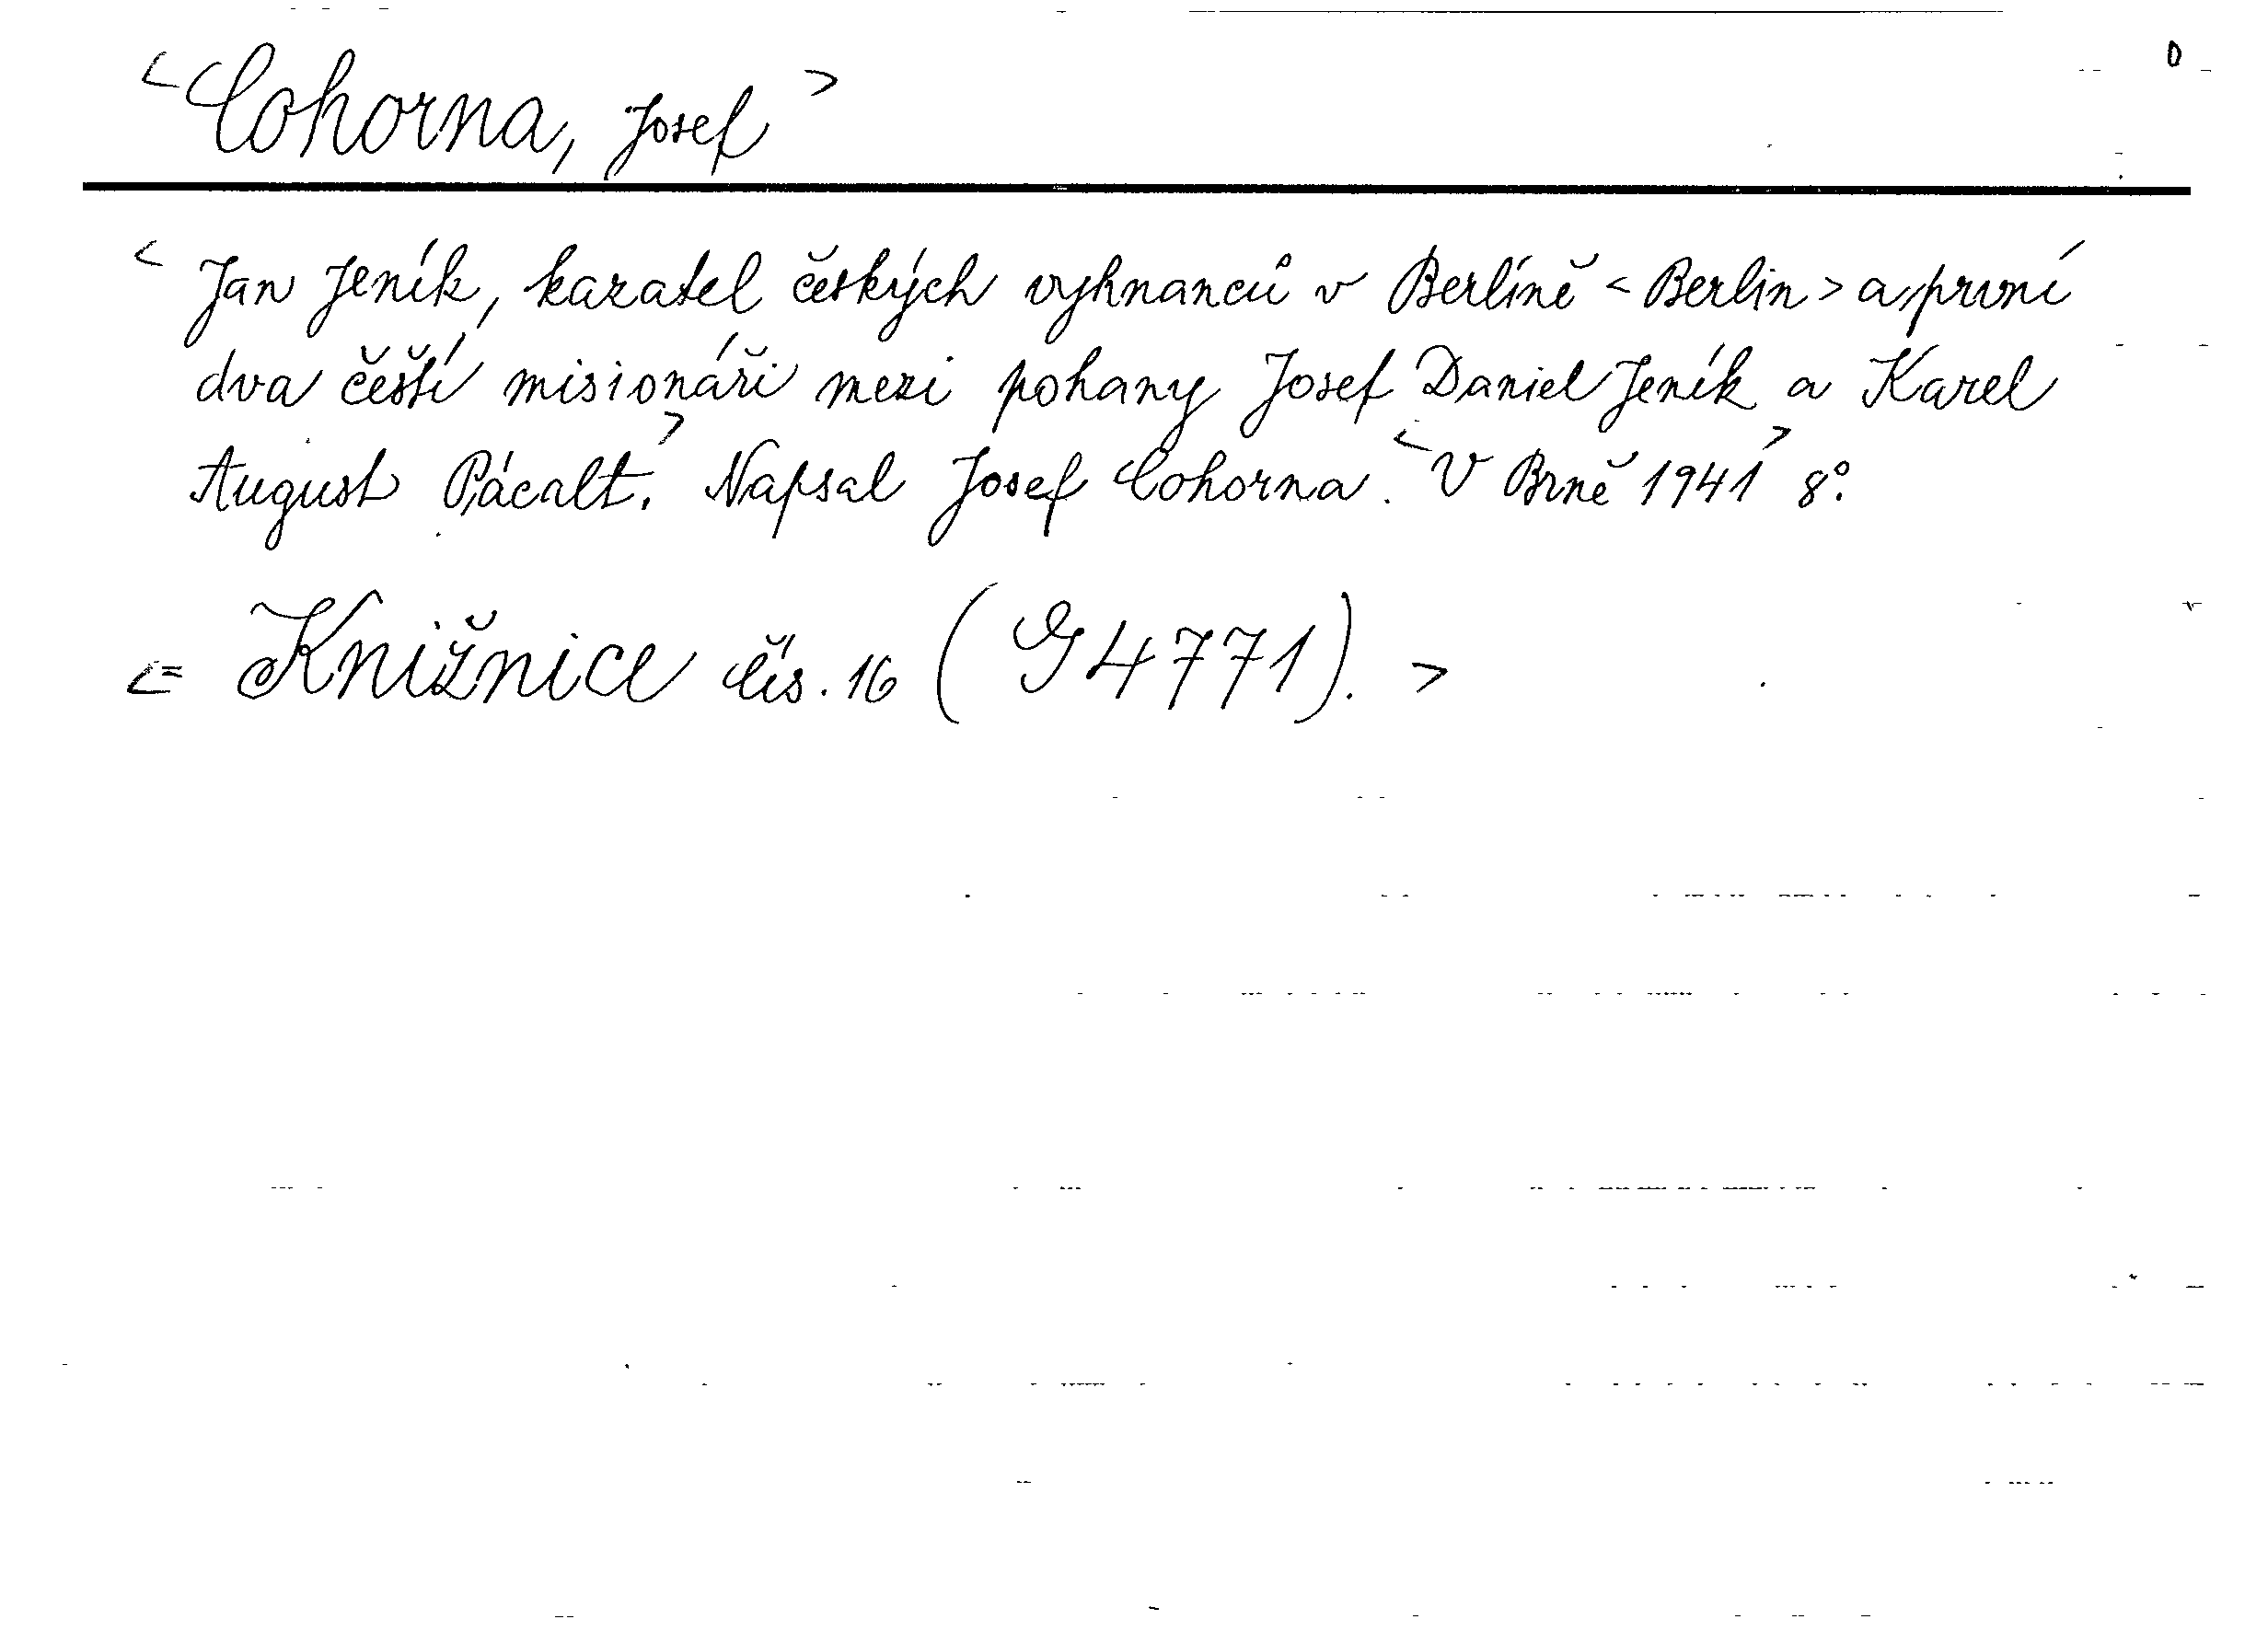 <Cohorna, Josef> 0
<Jan Jeník, kazatel českých vyhnanců v Berlíně <Berlin> a první
dva čeští misionáři mezi pohany Josef Daniel Jeník a Karel
August Pácalt.> Napsal Josef Cohorna. <V Brně 1941> 8°.
<= Knižnice čís. 16 (G 4771). >